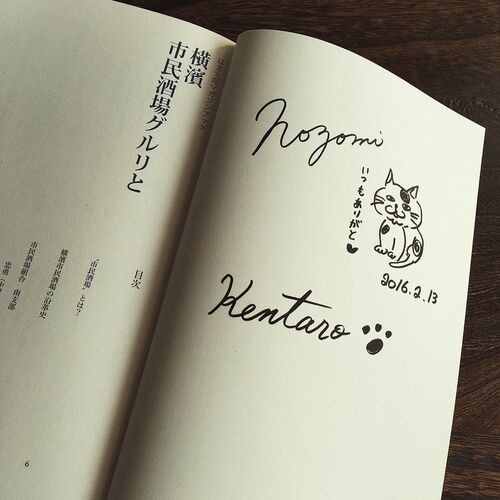 はま太郎マガジンブック
横濱
市民酒場グルリと
目次
“市民酒場”とは？
横濱市民酒場の沿革史
市民酒場組合 南支部
忠勇
6
Nozomi
いつもありがと♥
2016.2.13
Kentaro